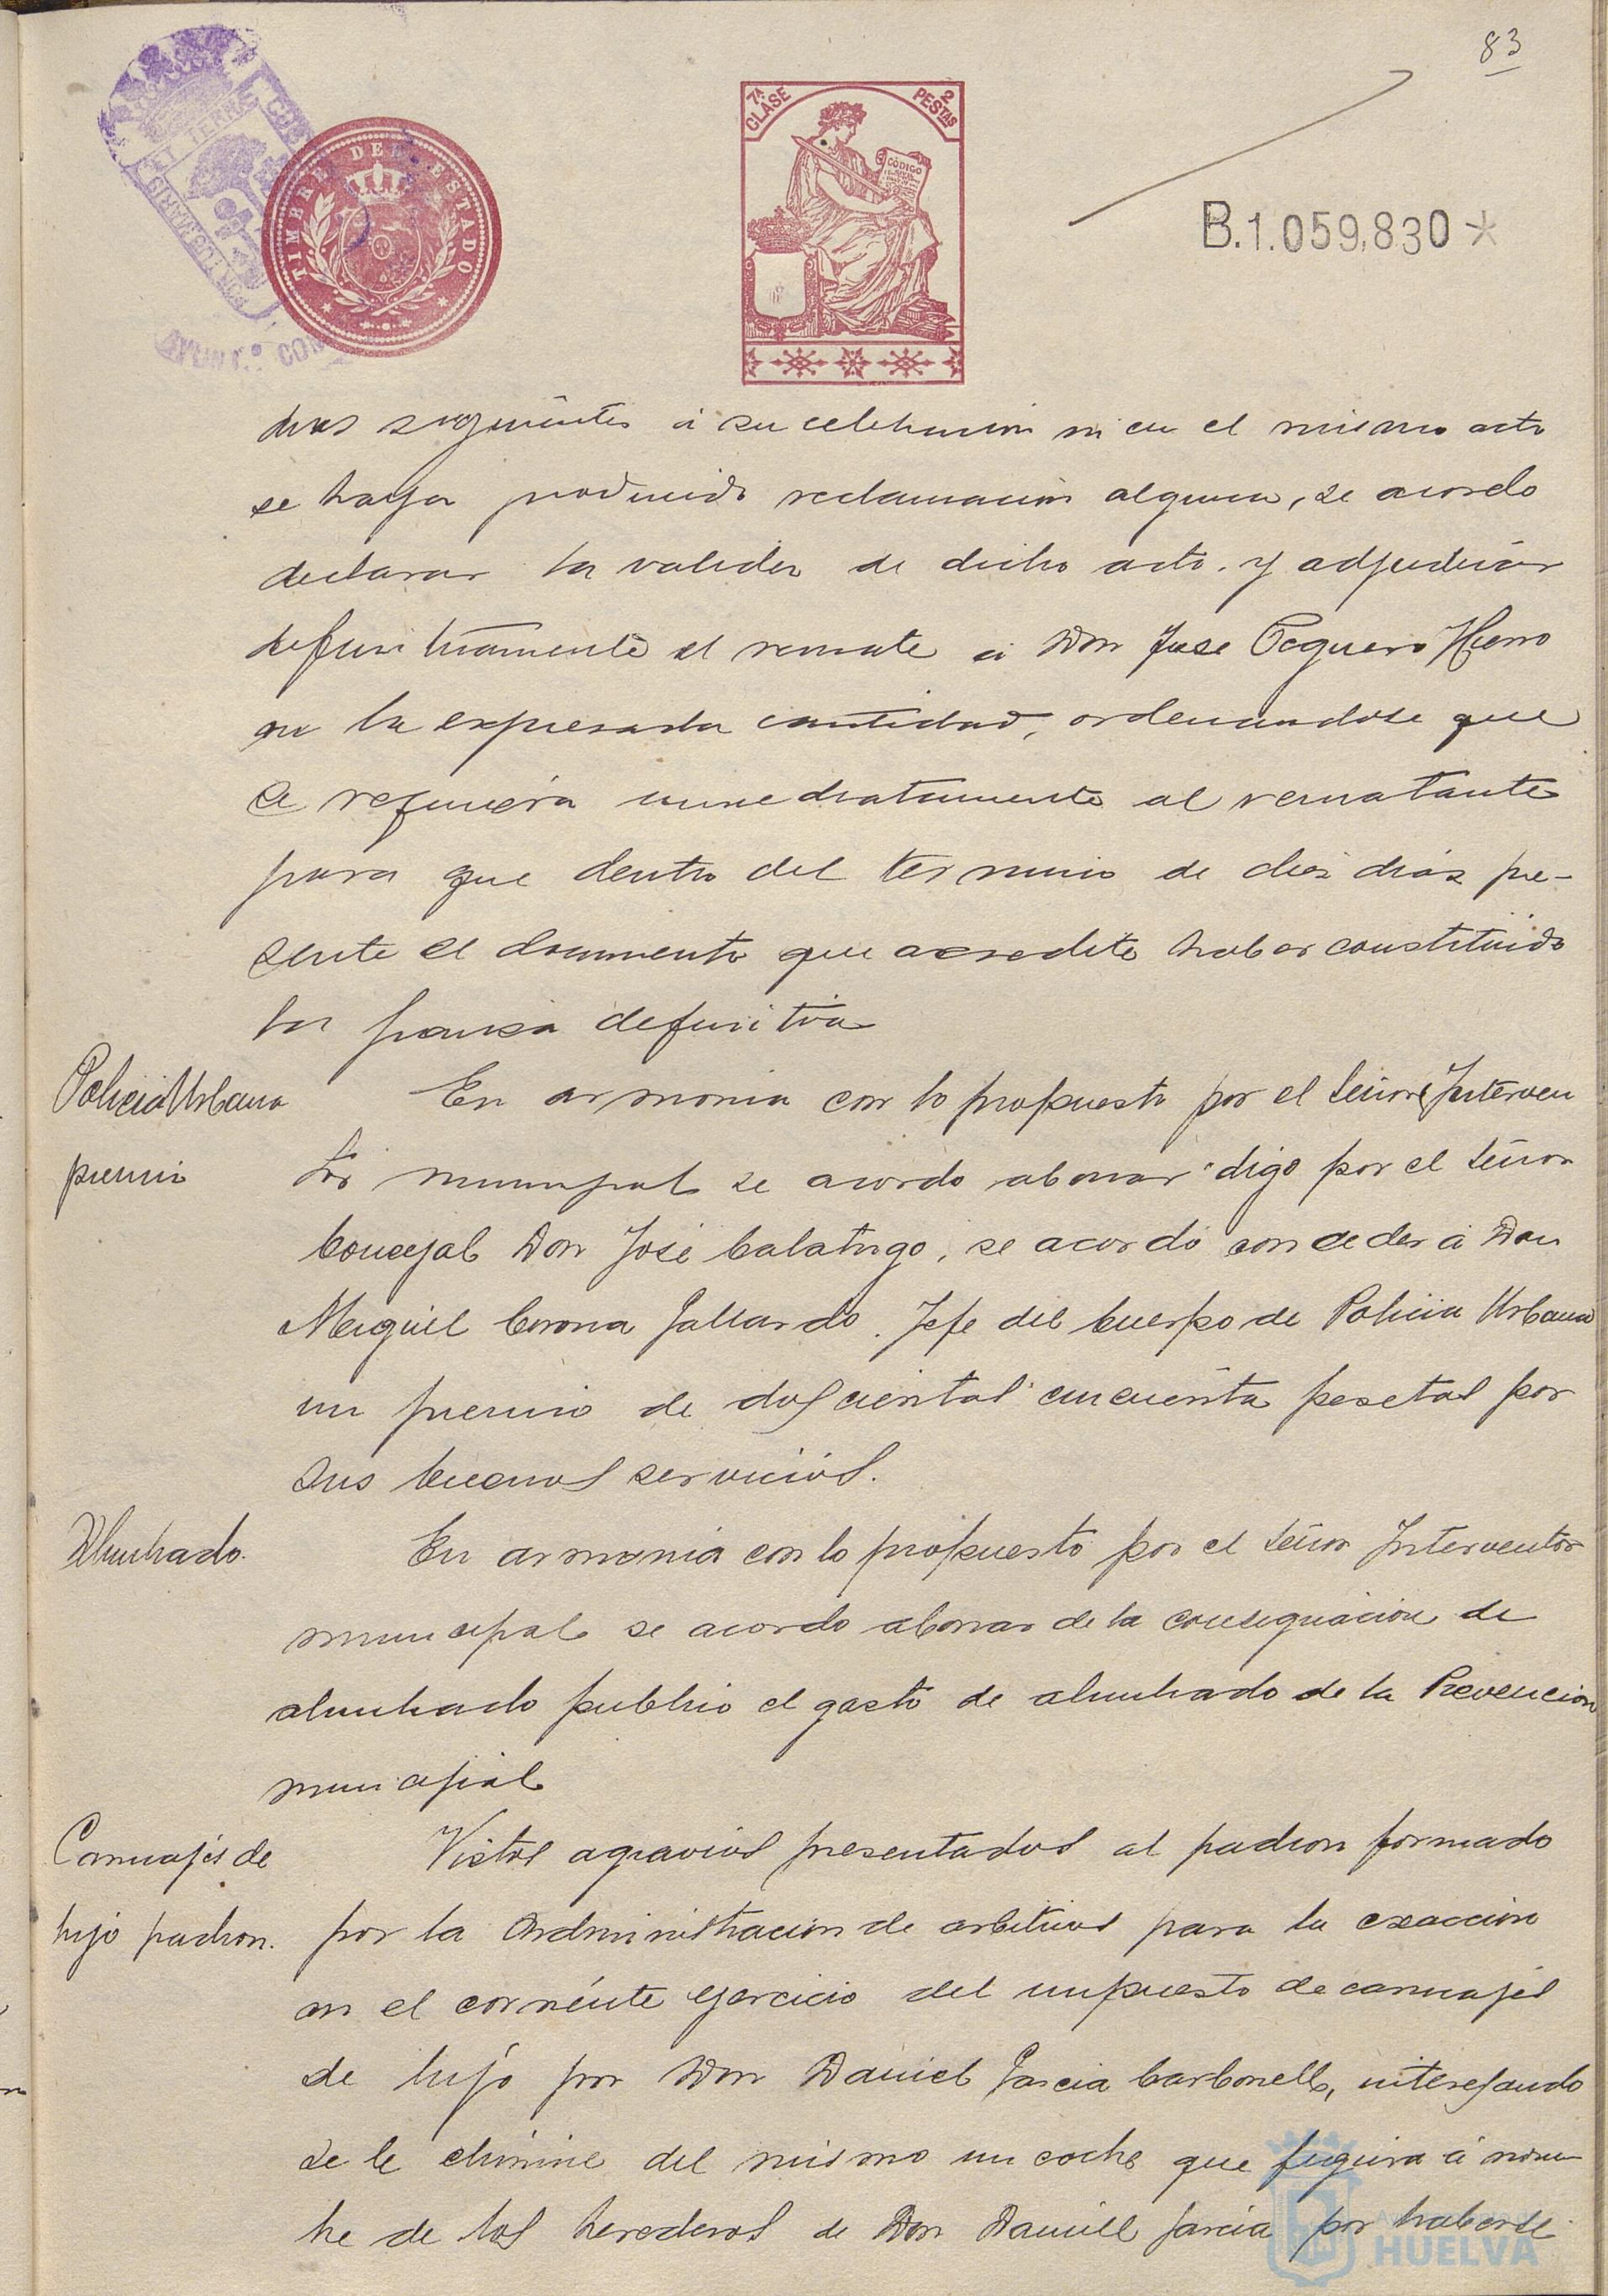 83
7ª CLASE
2 PESTAS
CÓDIGO CIVIL
TIMBRE DEL ESTADO
B.1.059,830*
dias siguientes á su celebracion ni en el mismo acto
se haya producido reclamacion alguna, se acordo
declarar la validez de dicho acto y adjudicar
definitivamente el remate á Don Jose Peguero Hierro
en la expresada cantidad, ordenandose que
se requiera inmediatamente al rematante
para que dentro del termino de diez dias pre-
sente el documento que acredite haber constituido
la fianza definitiva
Policia Urbana
premio
En armonia con lo propuesto por el Señor Interven
tor municipal se acordo abonar digo por el Señor
Concejal Don José Calatrigo, se acordó conceder á Don
Miguel Corona Gallardo. Jefe del Cuerpo de Policia Urbana
un premio de doscientas cincuenta pesetas por
sus buenos servicios.
Alumbrado.
En armonia con lo propuesto por el Señor Interventor
municipal se acordo abonar de la consignacion de
alumbrado publico el gasto de alumbrado de la Prevencion
municipal
Carruajes de
lujo padron.
Vistos agravios presentados al padron formado
por la Administracion de arbitrios para la exaccion
en el corriente ejercicio del impuesto de carruajes
de lujo por Don Daniel Garcia Carbonell, interesando
se le elimine del mismo un coche que figura á nom
bre de los herederos de Don Daniel Garcia por haberse
HUELVA